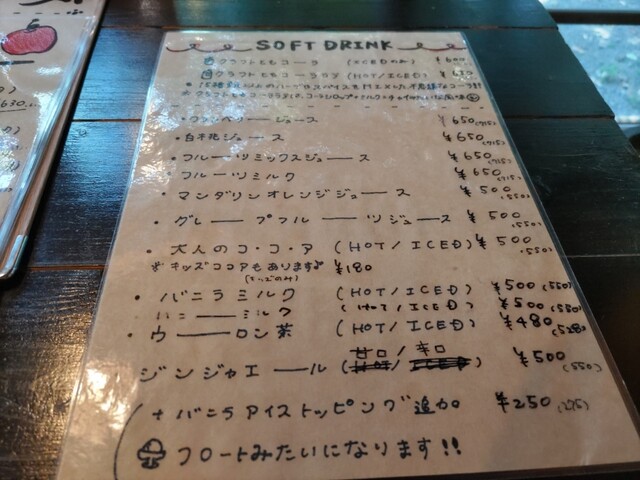 SOFT DRINK
クラフトともコーラ (ICEDのみ) ¥600
クラフトともコーララテ (HOT/ICED) ¥630
・クランベリージュース ¥650(715)
・白桃ジュース ¥650(715)
・フルーツミックスジュース ¥650(715)
フルーツミルク ¥650(715)
・マンダリンオレンジジュース ¥500(550)
・グレープフルーツジュース ¥500(550)
・大人のコ・コ・ア (HOT/ICED) ¥500(550)
※キッズココアもあります♪ ¥180
・バニラミルク (HOT/ICED) ¥500(550)
ハニーミルク (HOT/ICED) ¥500(550)
・ウーロン茶 (HOT/ICED) ¥480(528)
甘口/辛口
ジンジャエール (HOT/ICED) ¥500(550)
+バニラアイストッピング追加 ¥250(275)
フロートみたいになります!!
630